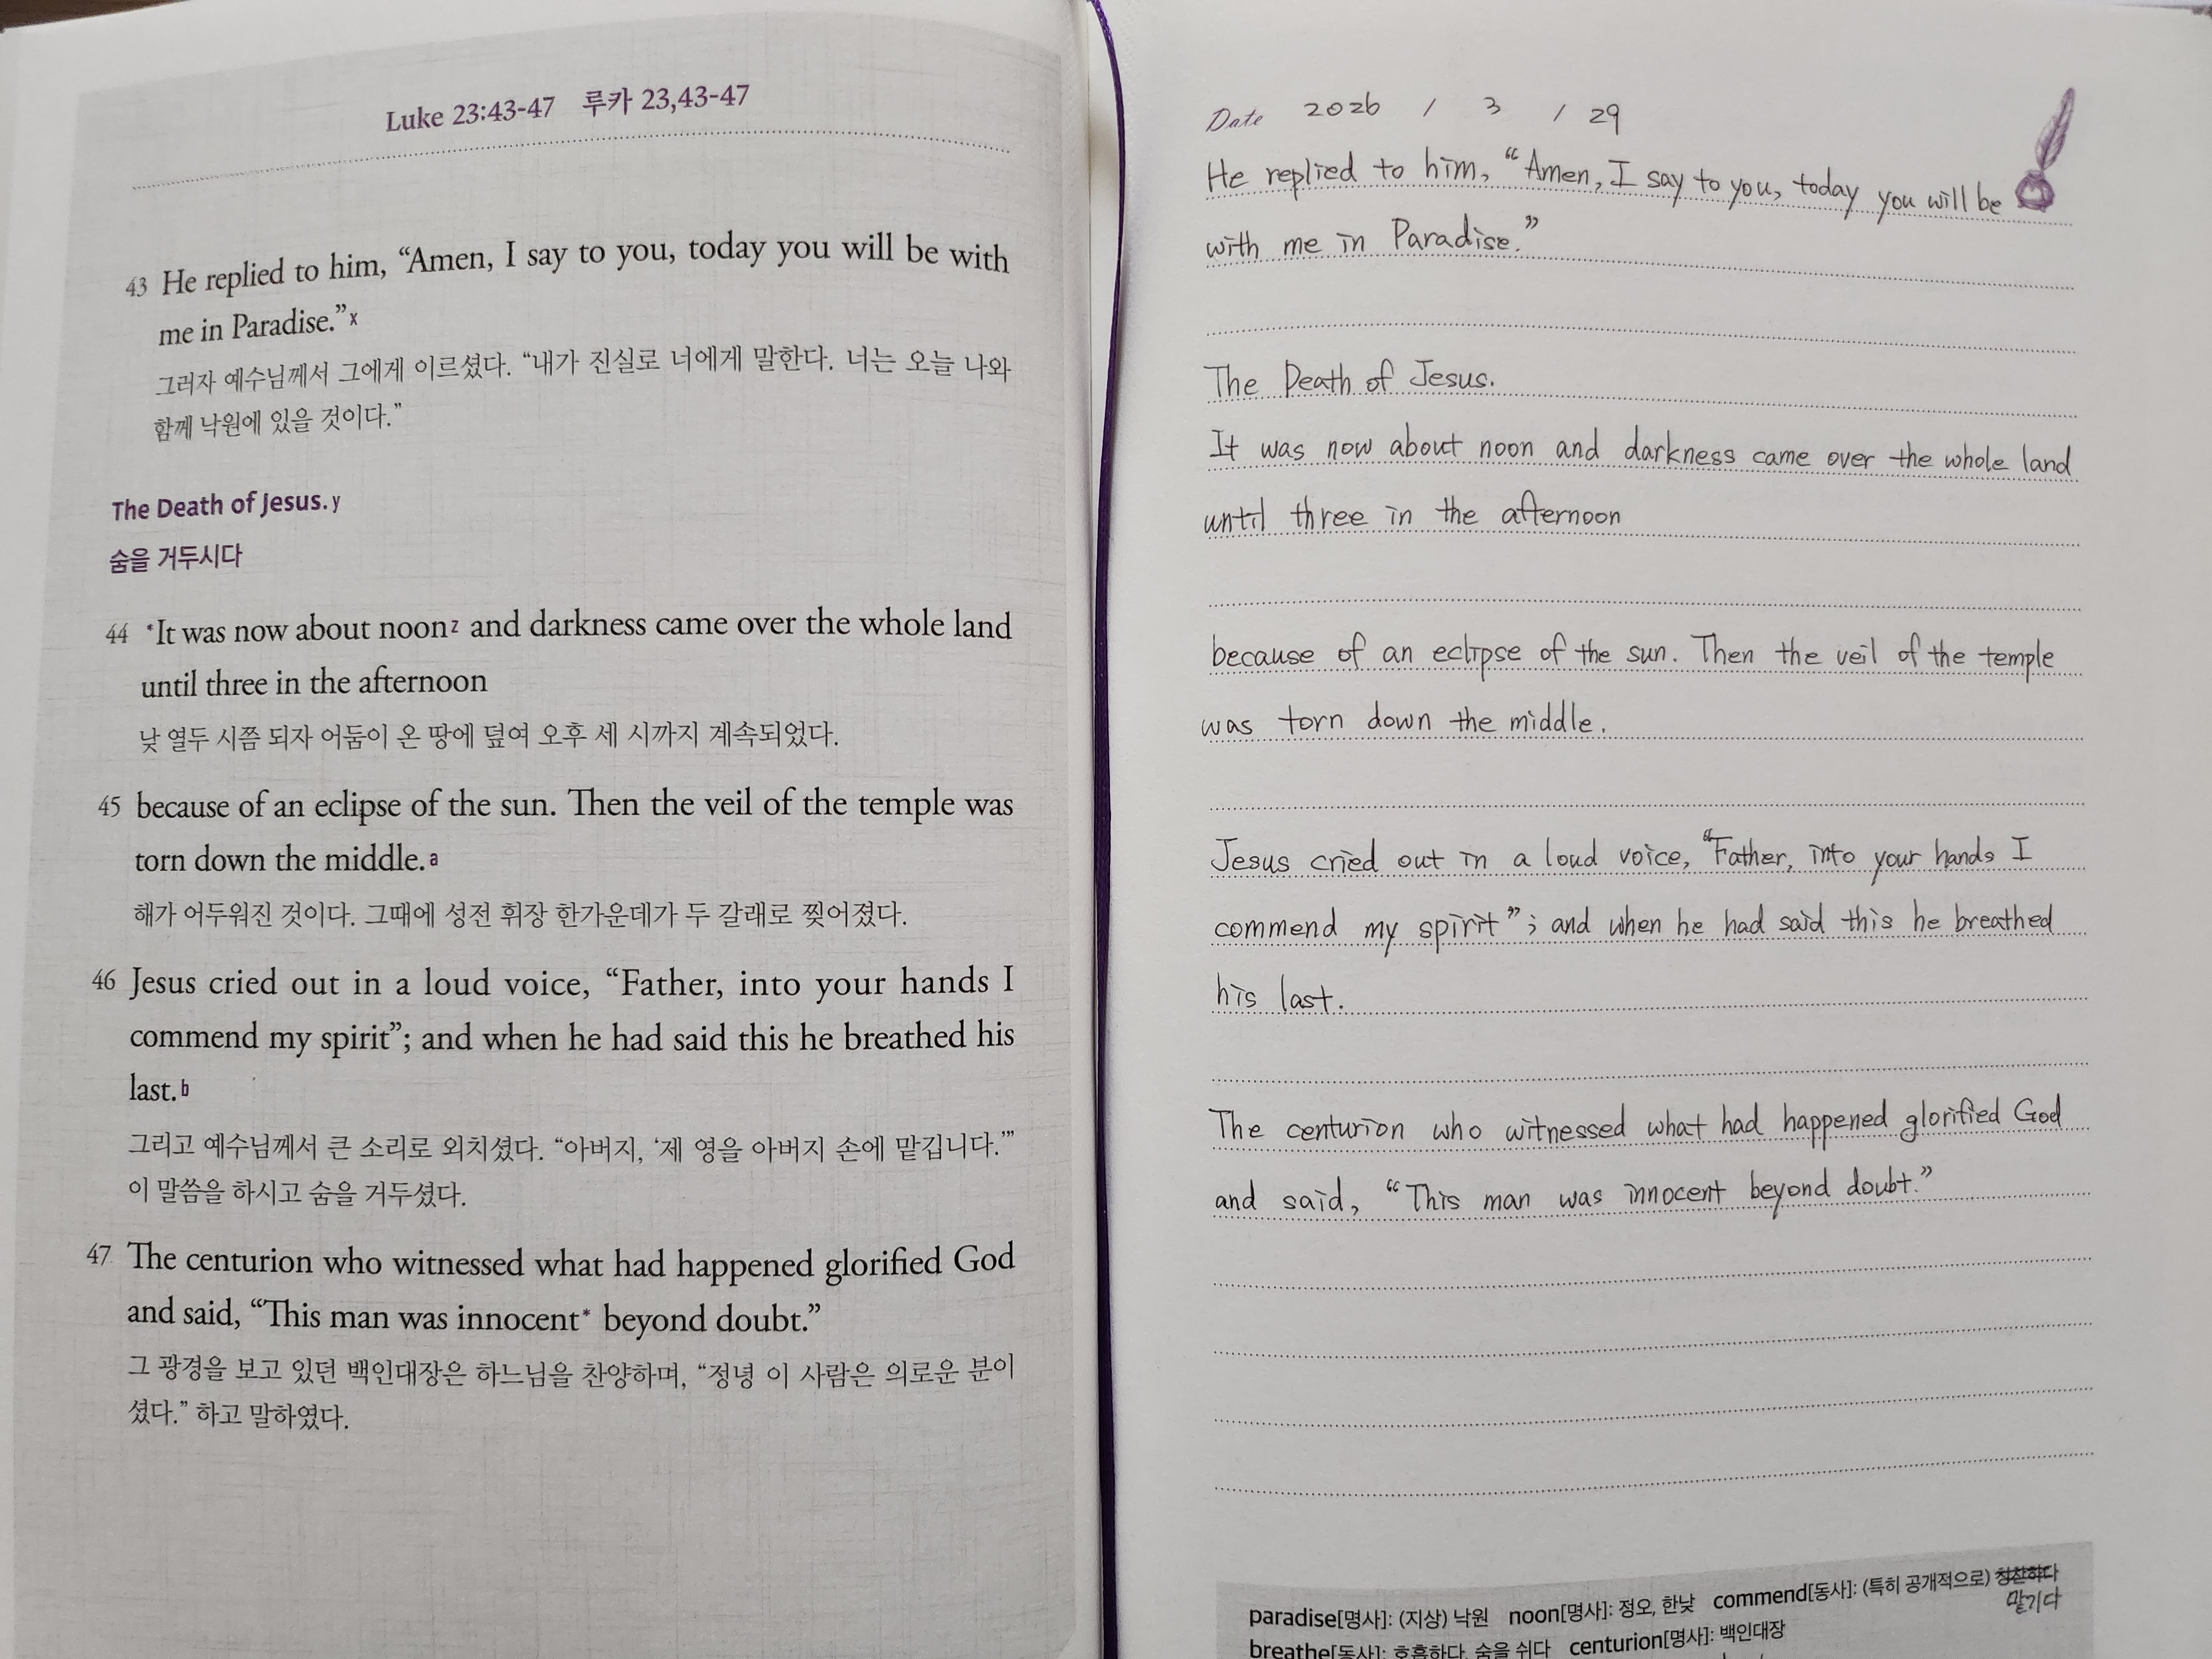 Luke 23:43-47 루카 23,43-47
43 He replied to him, “Amen, I say to you, today you will be with
me in Paradise.”x
그러자 예수님께서 그에게 이르셨다. “내가 진실로 너에게 말한다. 너는 오늘 나와
함께 낙원에 있을 것이다.”
The Death of Jesus.y
숨을 거두시다
44 *It was now about noonz and darkness came over the whole land
until three in the afternoon
낮 열두 시쯤 되자 어둠이 온 땅에 덮여 오후 세 시까지 계속되었다.
45 because of an eclipse of the sun. Then the veil of the temple was
torn down the middle.a
해가 어두워진 것이다. 그때에 성전 휘장 한가운데가 두 갈래로 찢어졌다.
46 Jesus cried out in a loud voice, “Father, into your hands I
commend my spirit”; and when he had said this he breathed his
last.b
그리고 예수님께서 큰 소리로 외치셨다. “아버지, ‘제 영을 아버지 손에 맡깁니다.’”
이 말씀을 하시고 숨을 거두셨다.
47 The centurion who witnessed what had happened glorified God
and said, “This man was innocent* beyond doubt.”
그 광경을 보고 있던 백인대장은 하느님을 찬양하며, “정녕 이 사람은 의로운 분이
셨다.” 하고 말하였다.
Date 2026 / 3 / 29
He replied to him, “Amen, I say to you, today you will be
with me in Paradise.”
The Death of Jesus.
It was now about noon and darkness came over the whole land
until three in the afternoon
because of an eclipse of the sun. Then the veil of the temple
was torn down the middle.
Jesus cried out in a loud voice, “Father, into your hands I
commend my spirit”; and when he had said this he breathed
his last.
The centurion who witnessed what had happened glorified God
and said, “This man was innocent beyond doubt.”
paradise[명사]: (지상) 낙원 noon[명사]: 정오, 한낮 commend[동사]: (특히 공개적으로) 칭찬하다
맡기다
breathe[동사]: 호흡하다, 숨을 쉬다 centurion[명사]: 백인대장